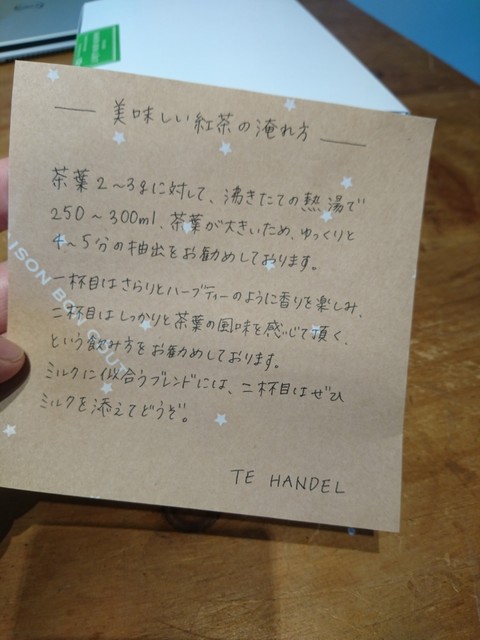 美味しい紅茶の淹れ方
茶葉2〜3gに対して、沸きたての熱湯で
250〜300ml、茶葉が大きいため、ゆっくりと
4〜5分の抽出をお勧めしております。
一杯目はさらりとハーブティーのように香りを楽しみ、
二杯目はしっかりと茶葉の風味を感じて頂く、
という飲み方をお勧めしております。
ミルクに似合うブレンドには、二杯目はぜひ
ミルクを添えてどうぞ。
TE HANDEL
ISON BON COU